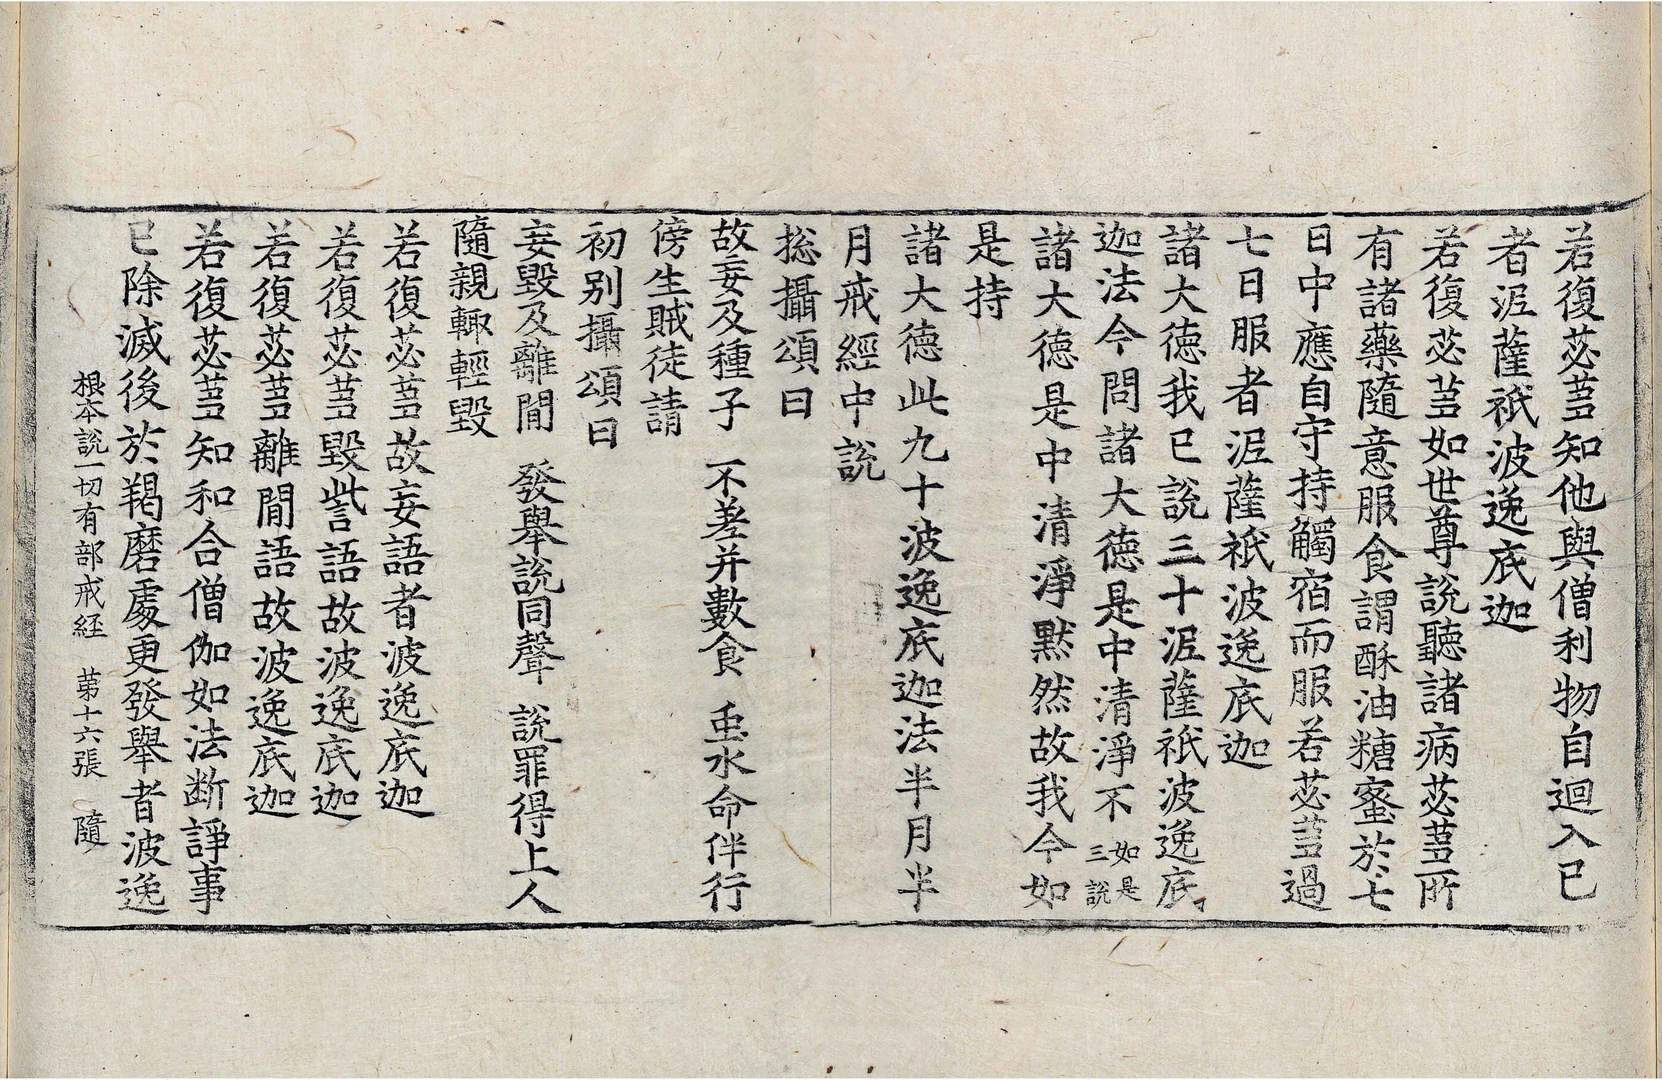 若復苾蒭知他與僧利物自迴入已
者泥薩祇波逸底迦
若復苾蒭如世尊說聽諸病苾蒭所
有諸藥隨意服食謂酥油糖蜜於七
日中應自守持觸宿而服若苾蒭過
七日服者泥薩祇波逸底迦
諸大德我已說三十泥薩祇波逸底
迦法今問諸大德是中清淨不如是三說
諸大德是中清淨默然故我今如
是持
諸大德此九十波逸底迦法半月半
月戒經中說
捴攝頌曰
故妄及種子 不差并數食 䖝水命伴行
傍生賊徒請
初別攝頌曰
妄毀及離間 發舉說同聲 說罪得上人
隨親輙輕毀
若復苾蒭故妄語者波逸底迦
若復苾蒭毀訾語故波逸底迦
若復苾蒭離間語故波逸底迦
若復苾蒭知和合僧伽如法斷諍事
已除滅後於羯磨處更發舉者波逸
根本說一切有部戒経 苐十六張 隨